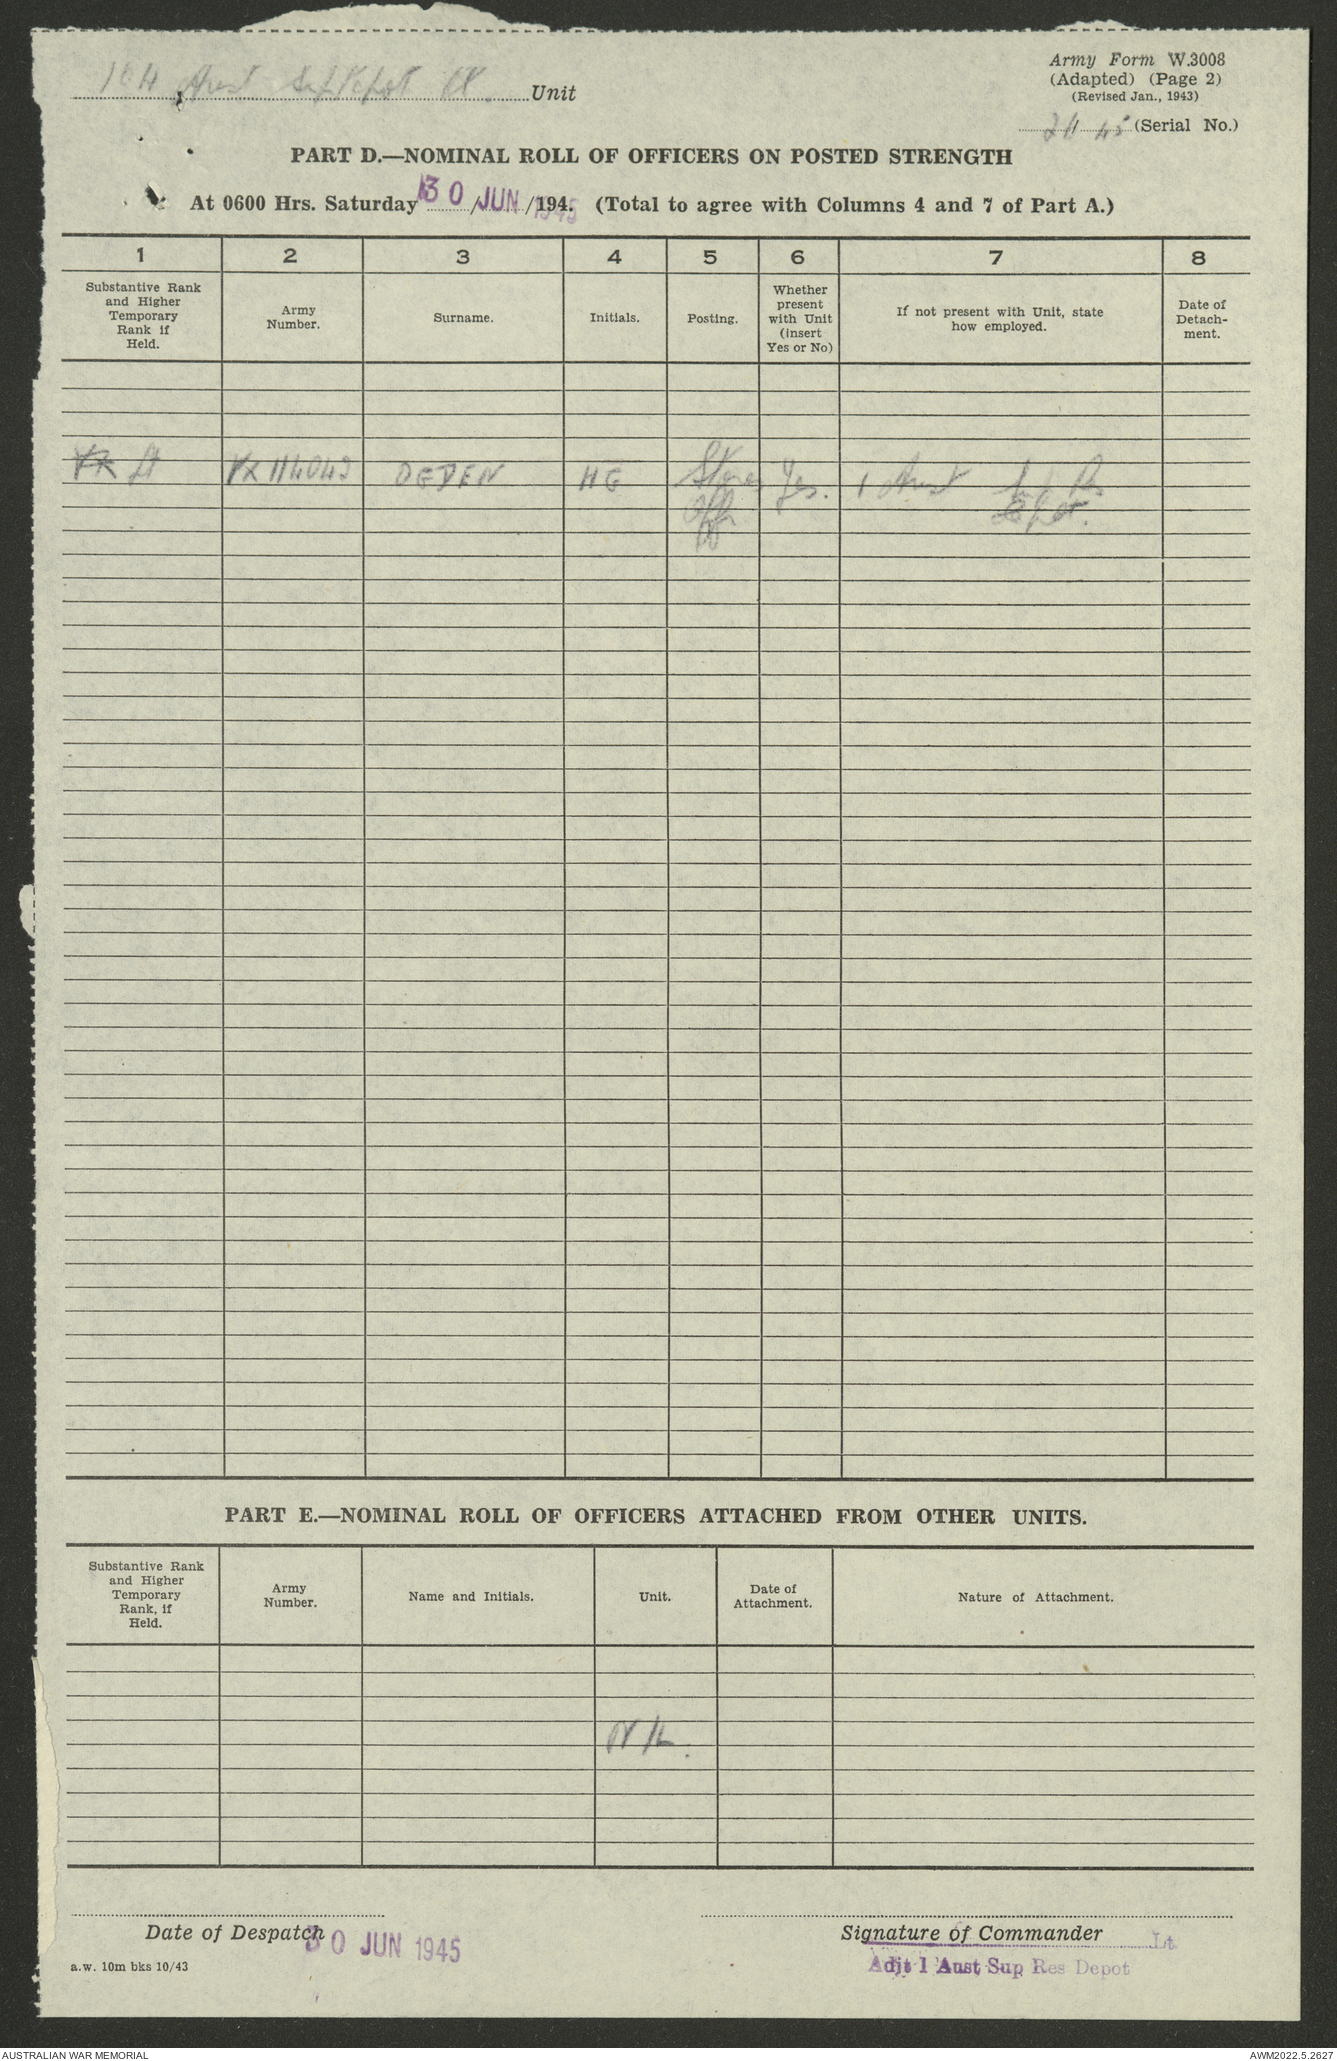 Army Form W.3008
(Adapted) (Page 2)
(Revised Jan., 1943)
Aust Unit
(Serial No.)
PART D.—NOMINAL ROLL OF OFFICERS ON POSTED STRENGTH
At 0600 Hrs. Saturday 30/JUN/194. 1945 (Total to agree with Columns 4 and 7 of Part A.)
1 2 3 4 5 6 7 8
Substantive Rank and Higher Temporary Rank if Held. Army Number. Surname. Initials. Posting. Whether present with Unit (insert Yes or No) If not present with Unit, state how employed. Date of Detach-ment.
Lt VX114043 DEDEN HG Stores Yes. 1 Aust
Off
PART E.—NOMINAL ROLL OF OFFICERS ATTACHED FROM OTHER UNITS.
Substantive Rank and Higher Temporary Rank, if Held. Army Number. Name and Initials. Unit. Date of Attachment. Nature of Attachment.
NIL.
Date of Despatch Signature of Commander
30 JUN 1945 Lt
a.w. 10m bks 10/43 Adjt 1 Aust Sup Res Depot
AUSTRALIAN WAR MEMORIAL AWM2022.5.2627